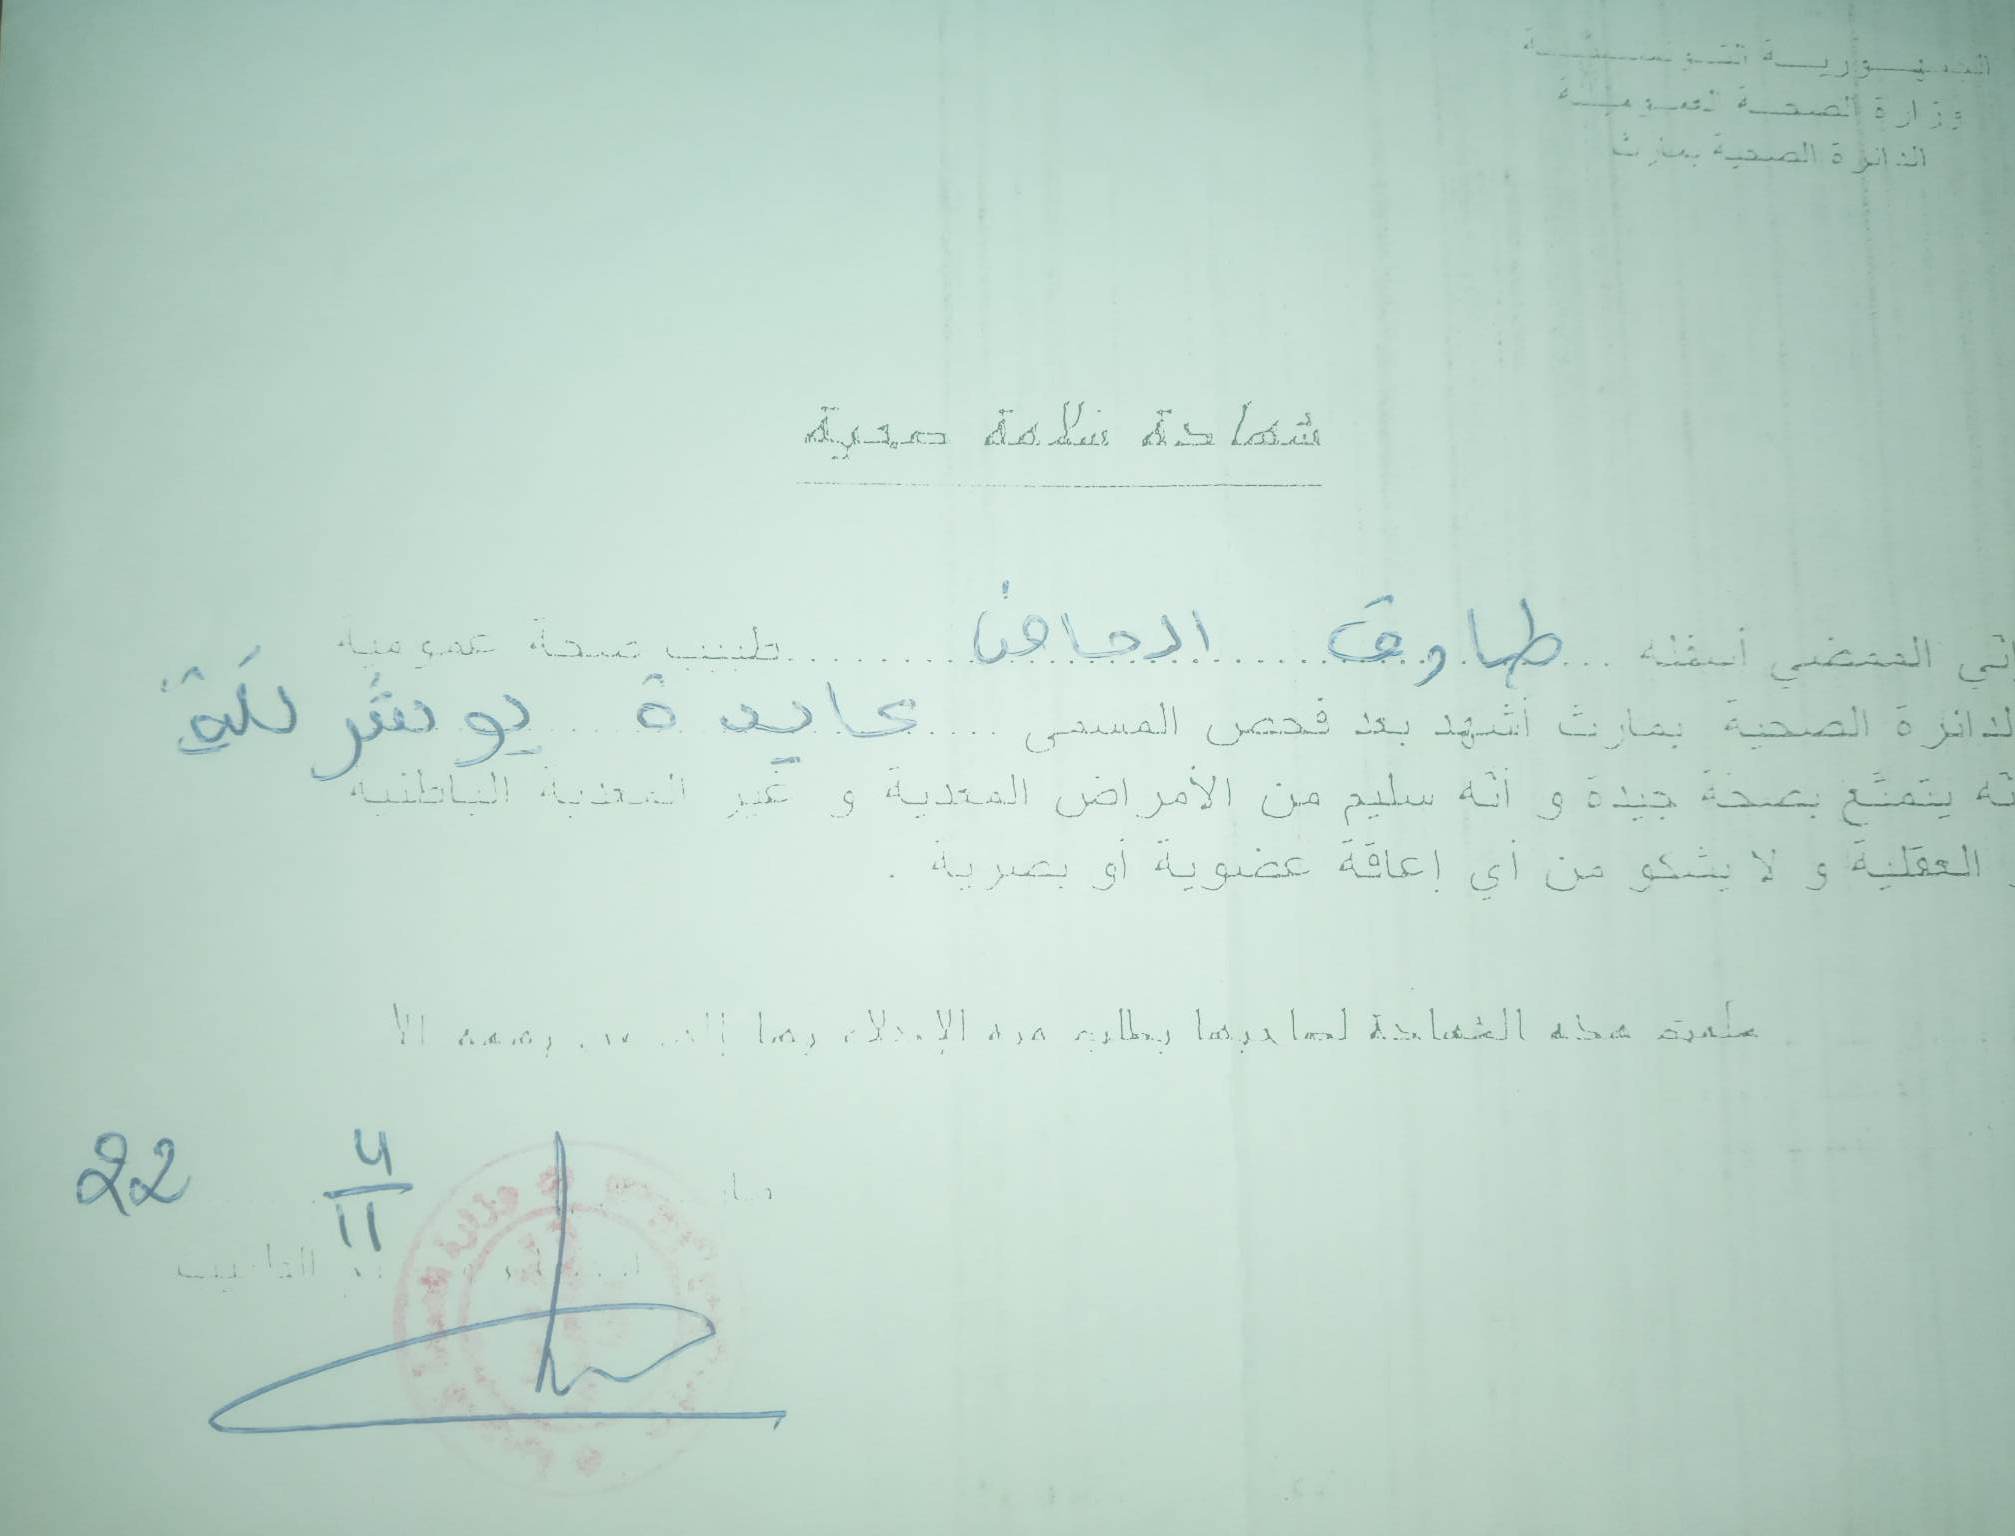 الجمهورية التونسية
وزارة الصحة العمومية
الدائرة الصحية بمارث
شهادة سلامة صحية
إني الممضي أسفله ... طارق ... الحاجي ... طبيب صحة عمومية
الدائرة الصحية بمارث أشهد بعد فحص المسمى ... عايدة بوشركة
أنه يتمتع بصحة جيدة و أنه سليم من الأمراض المعدية و غير المعدية الباطنية
و العقلية و لا يشكو من أي إعاقة عضوية أو بصرية .
سلمت هذه الشهادة لصاحبها بطلب منه الإدلاء بها
22 4/11
الطبيب